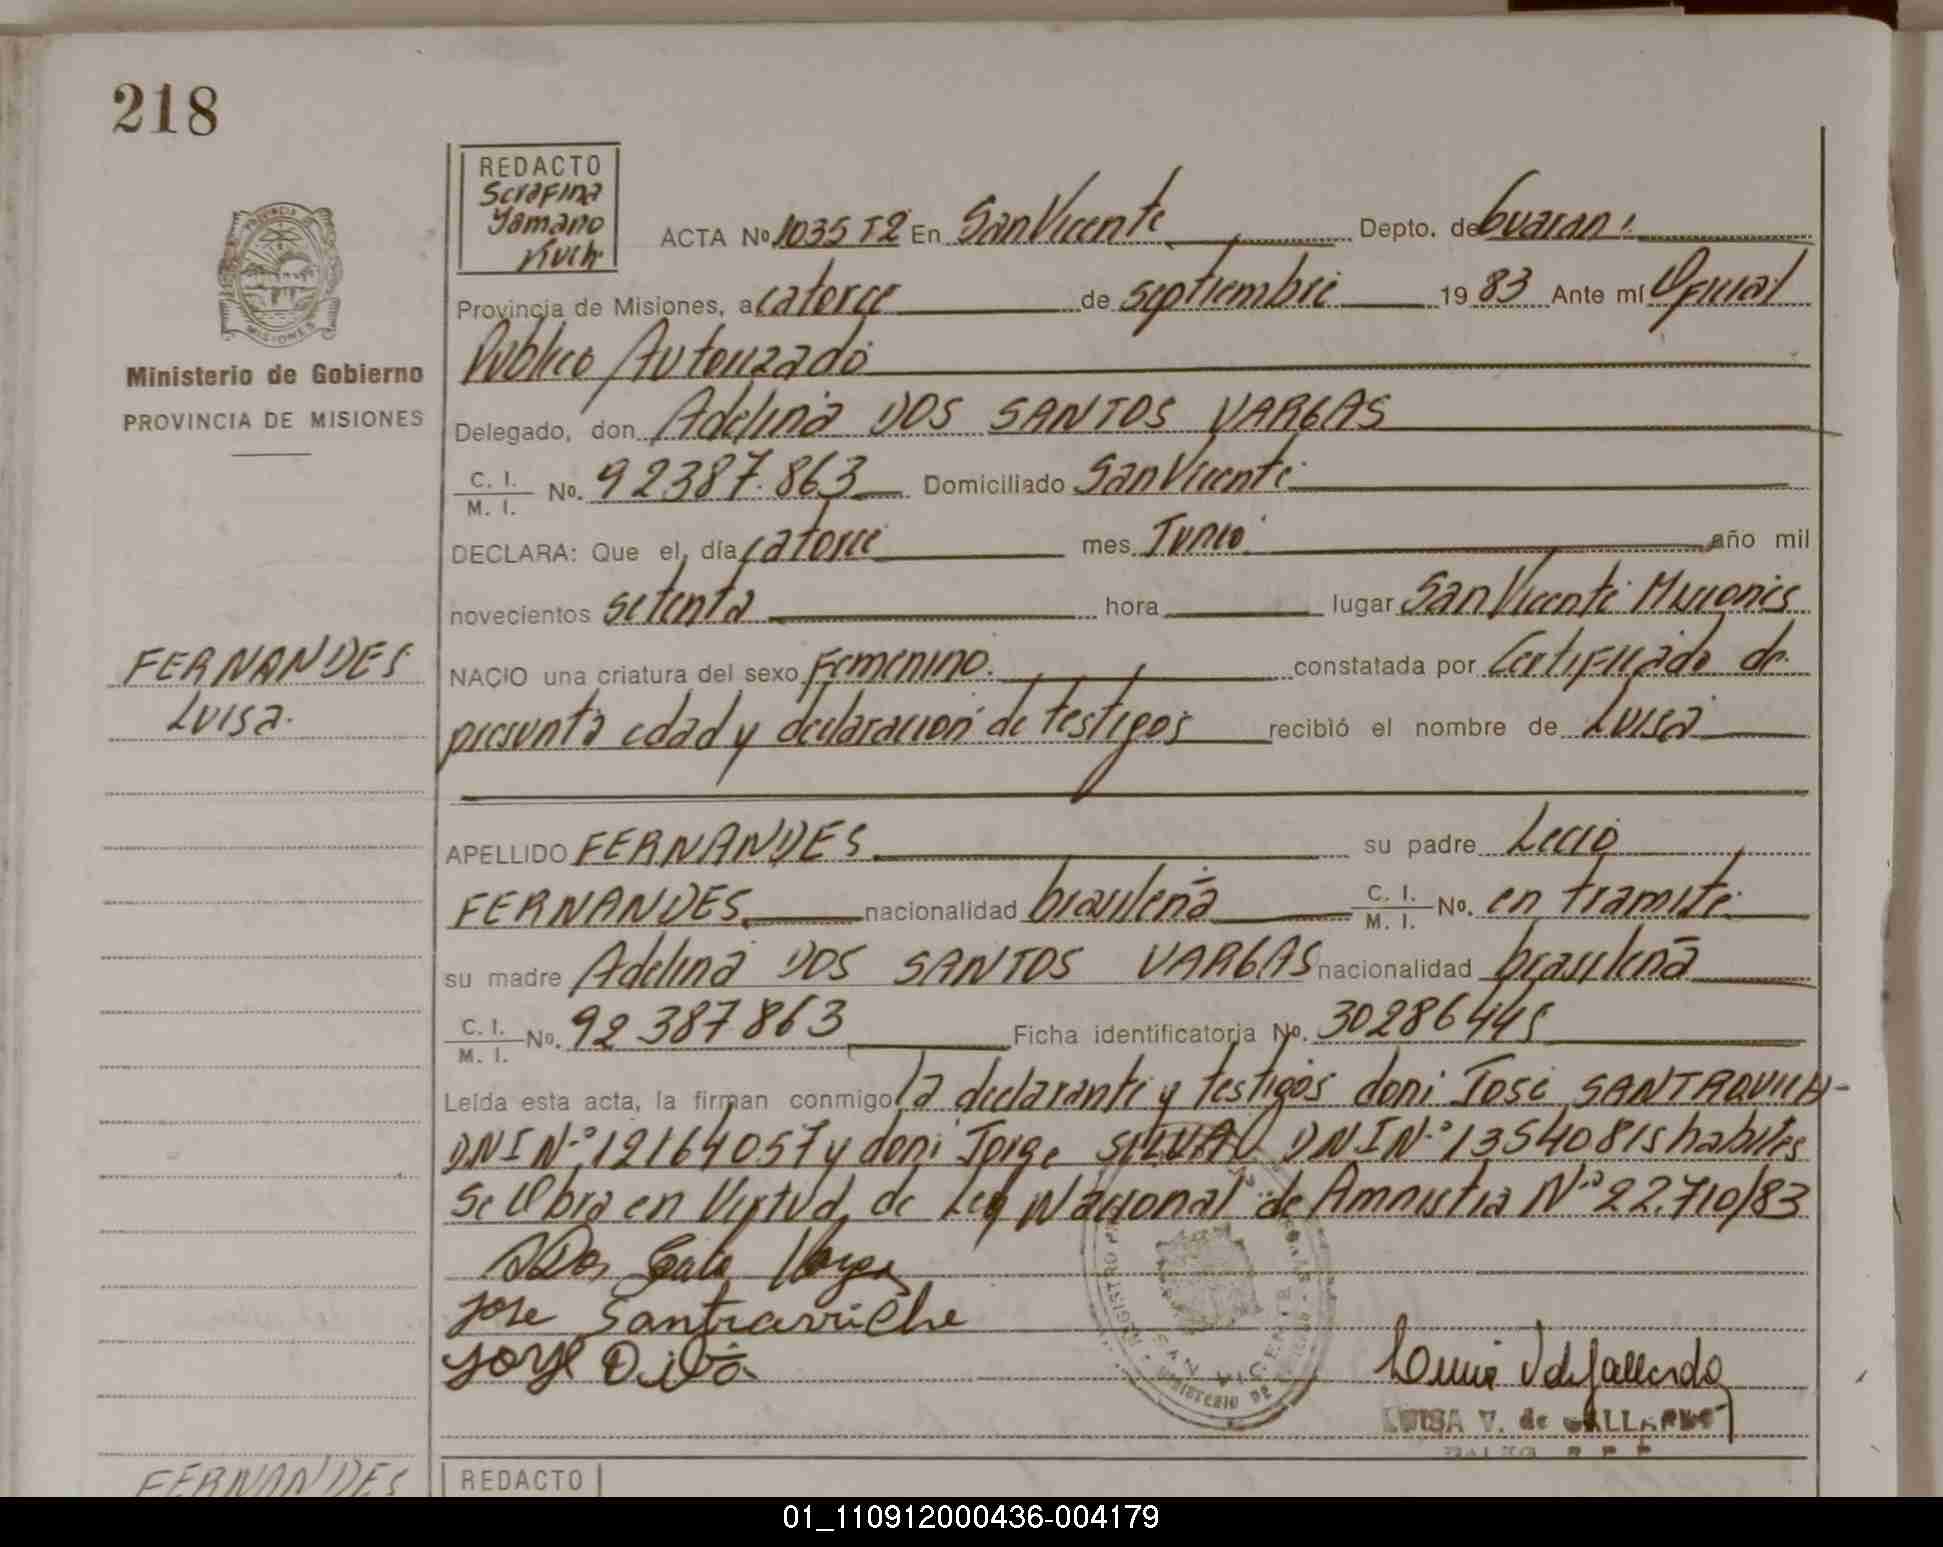 218
REDACTO
Serafina
Yamano
Kuch
ACTA Nº 1035 T2 En San Vicente Depto. de Guarani
Provincia de Misiones, a catorce de septiembre 19 83 Ante mí Oficial
Publico Autorizado
Ministerio de Gobierno
PROVINCIA DE MISIONES
Delegado, don Adelina DOS SANTOS VARGAS
C. I. / M. I. No. 92387.863 Domiciliado San Vicente
DECLARA: Que el día catorce mes Junio año mil
novecientos setenta hora lugar San Vicente Misiones
FERNANDES
Luisa.
NACIO una criatura del sexo Femenino. constatada por Certificado de
presunta edad y declaracion de testigos recibió el nombre de Luisa
APELLIDO FERNANDES su padre Lecio
FERNANDES nacionalidad brasileña C. I. / M. I. No. en tramite
su madre Adelina DOS SANTOS VARGAS nacionalidad brasileña
C. I. / M. I. No. 92 387 863 Ficha identificatoria No. 30286445
Leída esta acta, la firman conmigo la declarante y testigos don: José
DNI Nº 12164057 y don: Jorge SILVA DNI Nº 13540815 habiles
Se Obra en Virtud de Ley Nacional de Amnistia Nº 22.710/83
Jose
Jorge
LUISA V. de GALLARDO
FERNANDES
REDACTO
01_110912000436-004179